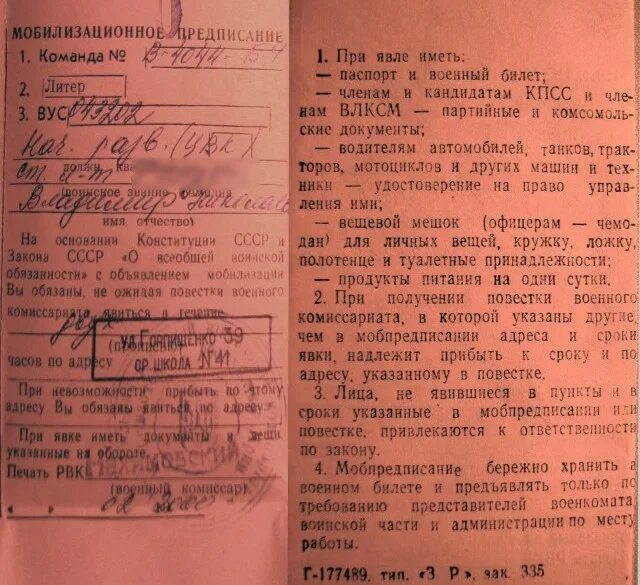 МОБИЛИЗАЦИОННОЕ ПРЕДПИСАНИЕ
1. Команда № В-4044-
2. Литер
3. ВУС 043202
Нач.
должн. ква
ст.
(воинское звание, фамилия
Владимир
имя, отчество)
На основании Конституции СССР и
Закона СССР «О всеобщей воинской
обязанности» с объявлением мобилизации
Вы обязаны, не ожидая повестки военного
комиссариата явиться в течение
двух
УЛ. ГОРПИЩЕНКО 39
СР. ШКОЛА №41
часов по адресу
При невозможности прибыть по этому
адресу Вы обязаны явиться по адресу:
При явке иметь документы и вещи,
указанные на обороте.
Печать РВК
(военный комиссар)
1. При явле иметь:
— паспорт и военный билет;
— членам и кандидатам КПСС и чле-
нам ВЛКСМ — партийные и комсомоль-
ские документы;
— водителям автомобилей, танков, трак-
торов, мотоциклов и других машин и тех-
ники — удостоверение на право управ-
ления ими;
— вещевой мешок (офицерам — чемо-
дан) для личных вещей, кружку, ложку,
полотенце и туалетные принадлежности;
— продукты питания на одни сутки.
2. При получении повестки военного
комиссариата, в которой указаны другие,
чем в мобпредписании адреса и сроки
явки, надлежит прибыть к сроку и по
адресу, указанному в повестке.
3. Лица, не явившиеся в пункты и в
сроки указанные в мобпредписании или
повестке, привлекаются к ответственности
по закону.
4. Мобпредписание бережно хранить в
военном билете и предъявлять только по
требованию представителей военкомата
воинской части и администрации по месту
работы.
Г-177489, тип. «З Р», зак. 335